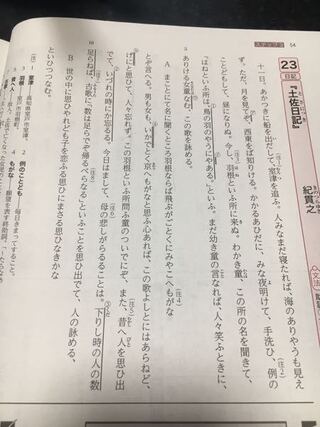 ステップ2
54
23
日記
『土佐日記』
紀貫之
文法
十一日。あかつきに船を出だして、室津を追ふ。人みなまだ寝たれば、海のありやうも見え
ず。ただ、月を見てぞ、西東をば知りける。かかるあひだに、みな夜明けて、手洗ひ、例の
ことどもして、昼になりぬ。今し、羽根といふ所に来ぬ。わかき童、この所の名を聞きて、
「はねといふ所は、鳥の羽のやうにやある」といふ。まだ幼き童の言なれば、人々笑ふときに、
ありける女童なむ、この歌を詠める。
A まことにて名に聞くところ羽根ならば飛ぶがごとくにみやこへもがな
とぞ言へる。男も女も、いかでとく京へもがなと思ふ心あれば、この歌よしとにはあらねど、
げにと思ひて、人々忘れず。この羽根といふ所問ふ童のついでにぞ、また、昔へ人を思ひ出
でて、いづれの時にか忘るる。今日はまして、母の悲しがらるることは。下りし時の人の数
足らねば、古歌に、「数は足らでぞ帰るべらなる」といふことを思ひ出でて、人の詠める、
B 世の中に思ひやれども子を恋ふる思ひにまさる思ひなきかな
といひつつなむ。
(注)
1 室津
2 例のことども 毎日きまってすること。
3 羽根
4 もがな
5 昔へ人
5
10